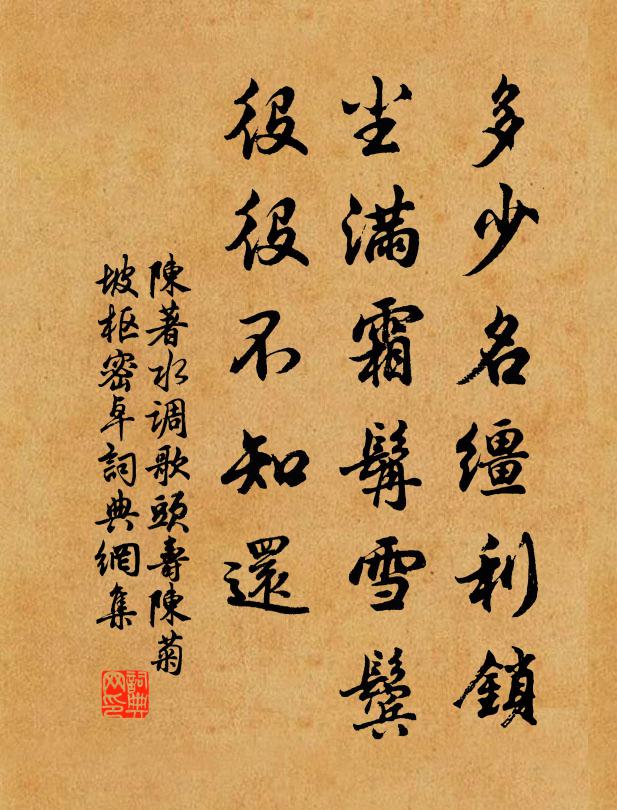 多少名繮利鎖
坐滿霜髯雪鬢
役役不知還
陳著水调歌頭壽陳菊
坡枢密卓詞典網集
詞典网印